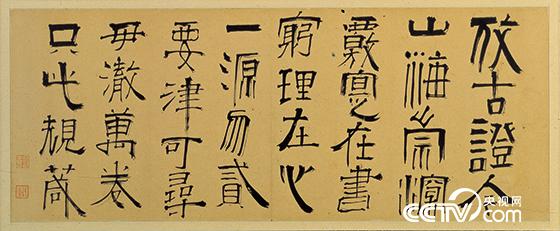 攷古證今
山海崇深
覈實在書
窮理在心
一源勿貳
要津可尋
毋澈萬卷
只此規箴
央视网
CCTV.com